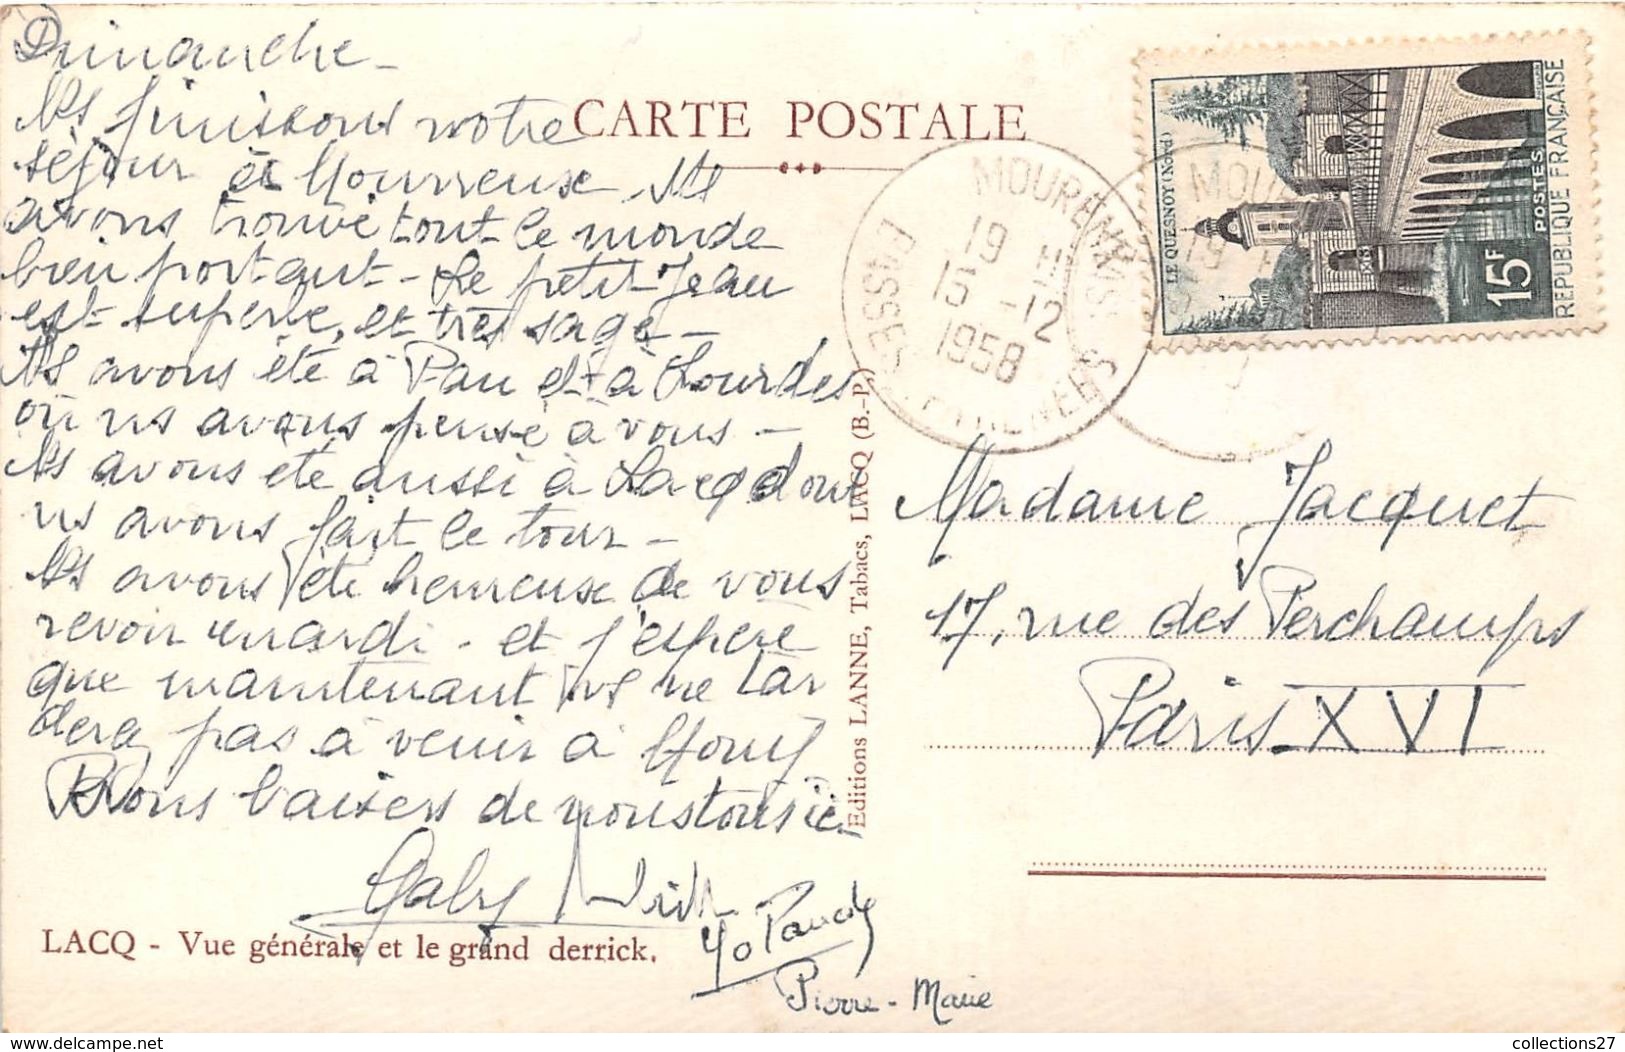 Dimanche -
Ns finissons notre
séjour à Mourreuse Ns
avons trouvé tout le monde
bien portant - Le petit Jean
est superbe, et très sage -
Ns avons été à Pau et à Lourdes
où ns avons pensé à vous -
Ns avons été aussi à Lacq dont
ns avons fait le tour -
Ns avons été heureuse de vous
revoir mardi - et j'espère
que maintenant ns ne tar
dera pas à venir à
Bons baisers de nous tous
Gaby
Yo
Pierre-Marie
LACQ - Vue générale et le grand derrick.
CARTE POSTALE
Editions LANNE, Tabacs, LACQ (B.-P.)
MOURENX
19 H
15 -12
1958
BASSES-PYRENEES
MOU
19 H
LE QUESNOY (Nord)
15F
POSTES
REPUBLIQUE FRANÇAISE
Madame Jacquet
17, rue des Perchamps
Paris XVI
collections27